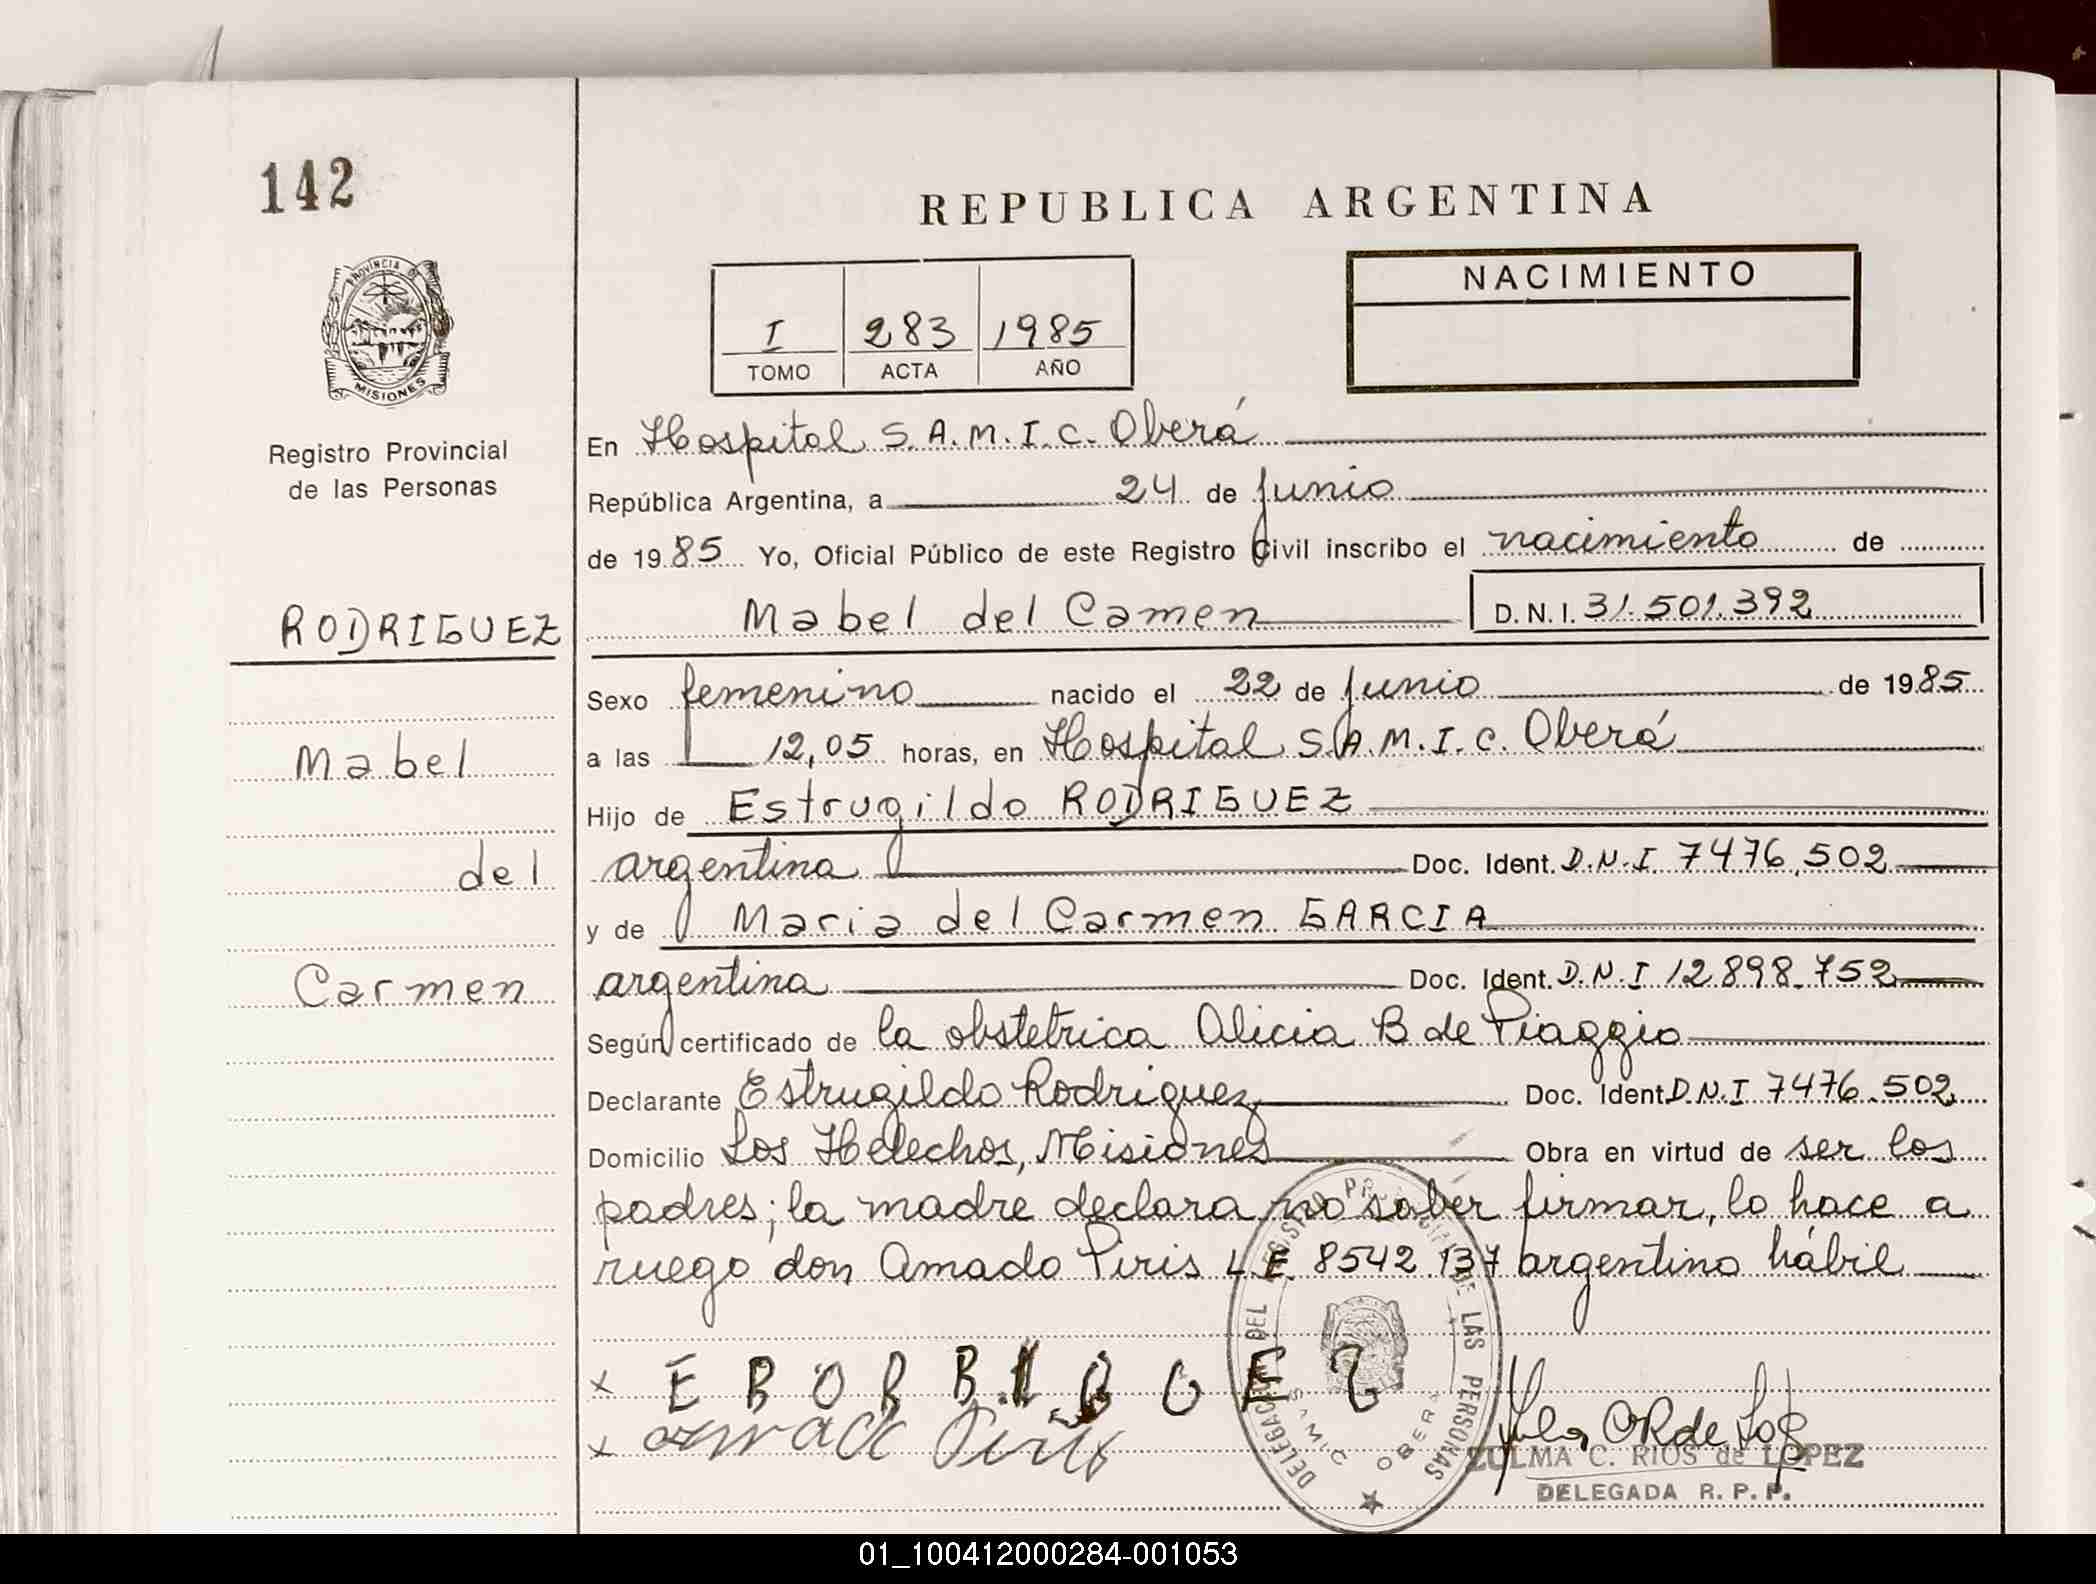 142
REPUBLICA ARGENTINA
PROVINCIA DE
MISIONES
I 283 1985
TOMO ACTA AÑO
NACIMIENTO
Registro Provincial
de las Personas
En Hospital S.A.M.I.C. Oberá
República Argentina, a 24 de junio
de 1985 Yo, Oficial Público de este Registro Civil inscribo el nacimiento de
RODRIGUEZ
Mabel del Camen D.N.I. 31.501.392
Sexo femenino nacido el 22 de junio de 1985
Mabel
a las 12,05 horas, en Hospital S.A.M.I.C. Oberá
Hijo de Estrugildo RODRIGUEZ
del
argentina Doc. Ident. D.N.I 7476.502
y de Maria del Carmen GARCIA
Carmen
argentina Doc. Ident. D.N.I 12.898.752
Según certificado de la obstetrica Alicia B de Piaggio
Declarante Estrugildo Rodriguez Doc. Ident D.N.I 7476.502
Domicilio Los Helechos, Misiones Obra en virtud de ser los
padres; la madre declara no saber firmar, lo hace a
ruego don Amado Piris L E. 8542 137 argentino hábil
DELEGACION DEL REGISTRO PROVINCIAL DE LAS PERSONAS
SAMIC OBERA
x
x Piris
ZULMA C. RIOS de LOPEZ
DELEGADA R. P. P.
01_100412000284-001053